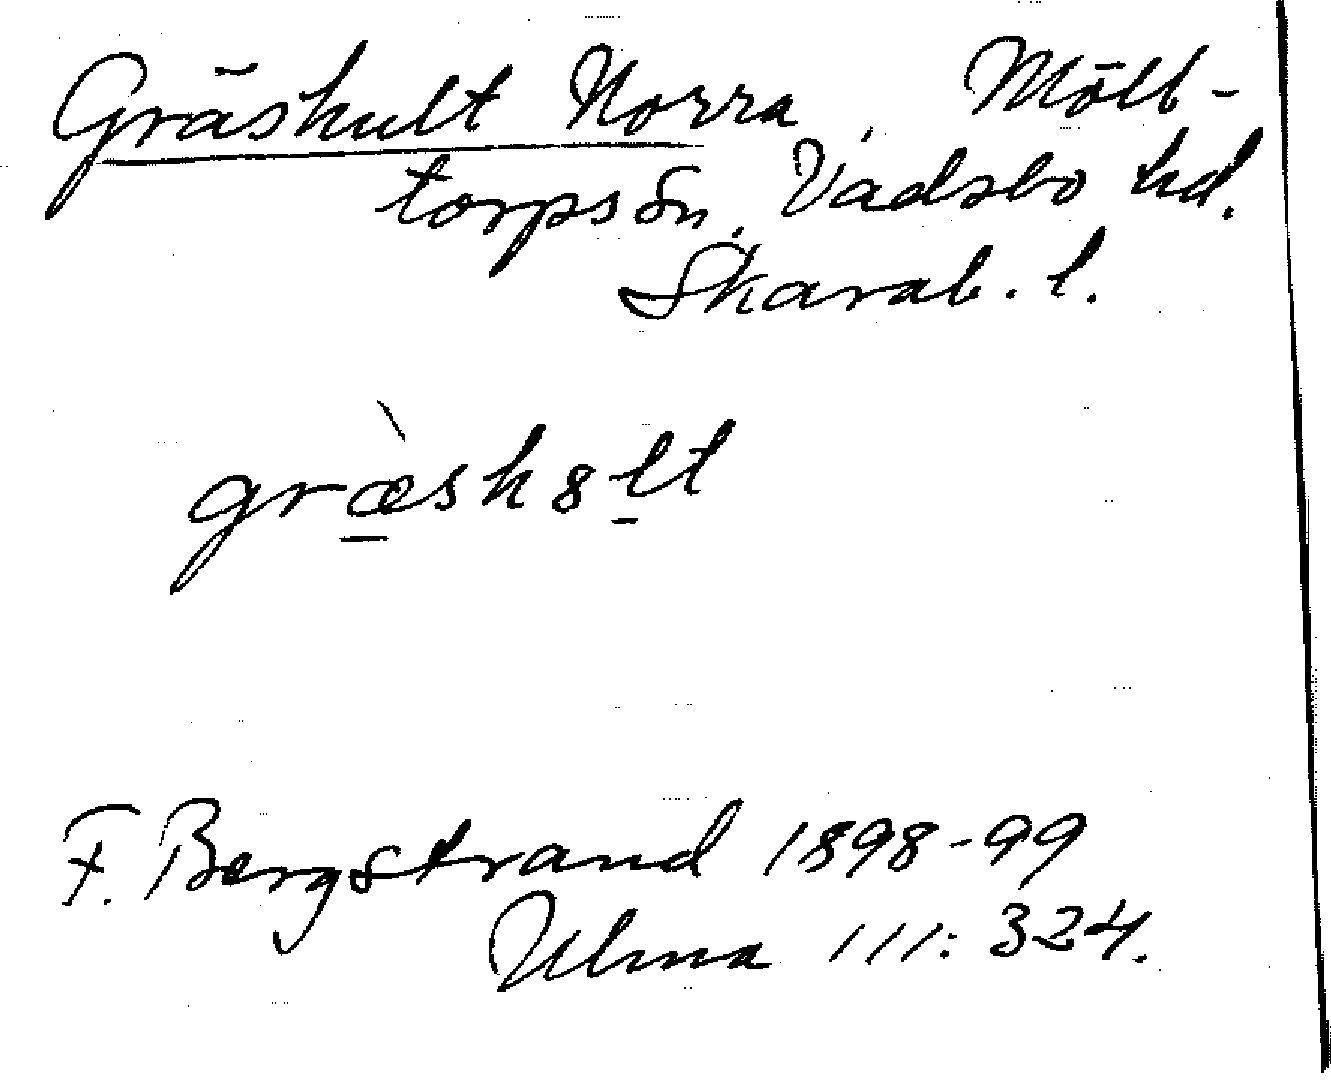 Gräshult Norra, Mölt-
torps sn, Vadsbo hd.
Skarab. l.
græ̀sh8lt
F. Bergstrand 1898-99
Ulma 111:324.